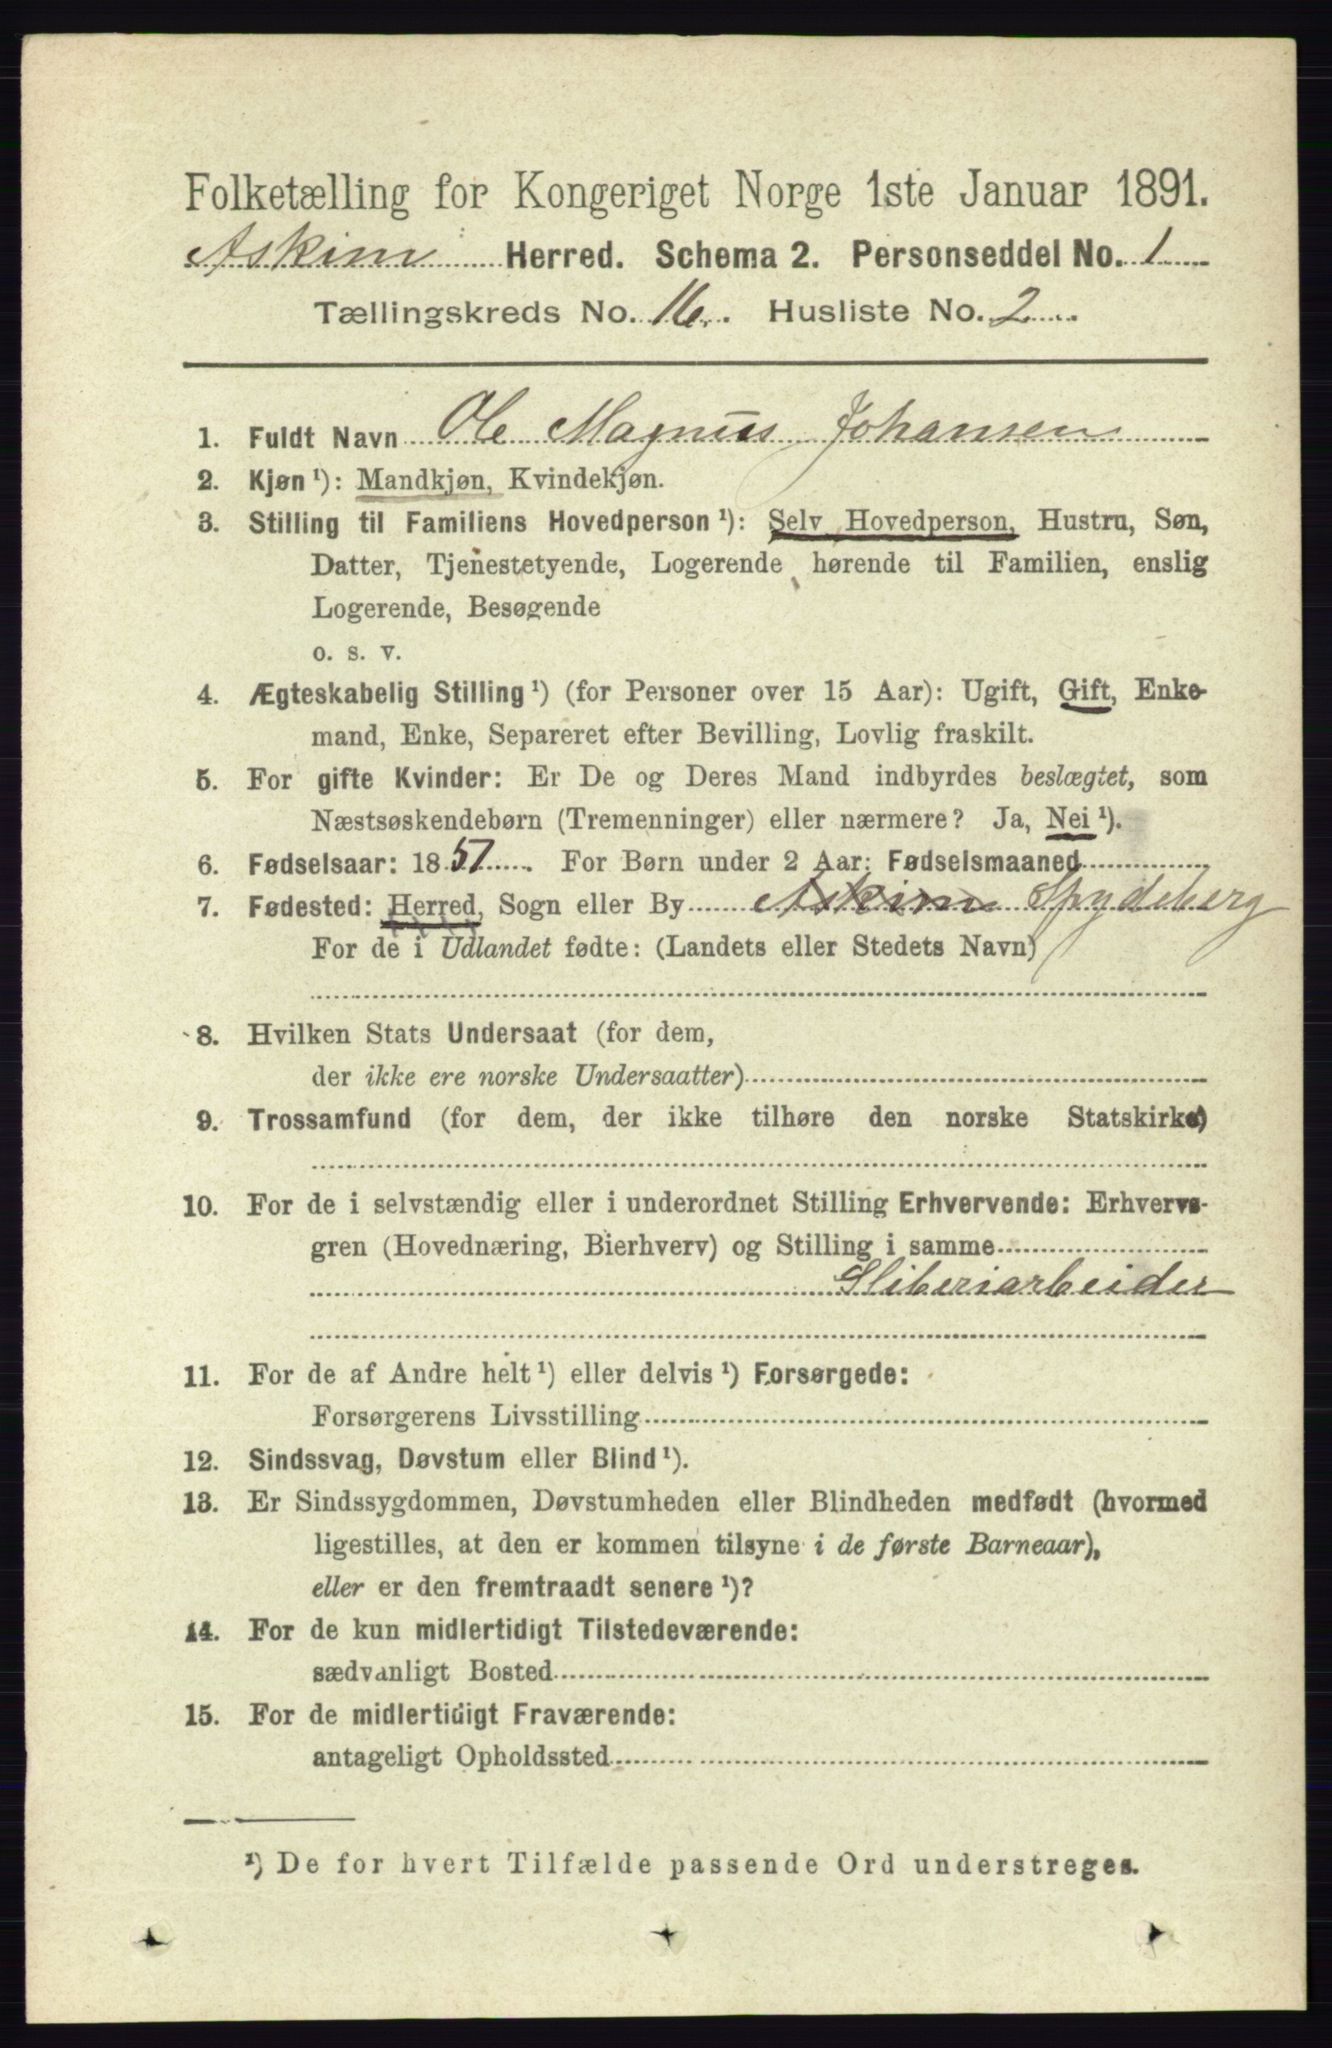 Folketælling for Kongeriget Norge 1ste Januar 1891.
Askim Herred. Schema 2. Personseddel No. 1
Tællingskreds No. 16. Husliste No. 2
1. Fuldt Navn Ole Magnus Johansen
2. Kjøn¹): Mandkjøn, Kvindekjøn.
3. Stilling til Familiens Hovedperson¹): Selv Hovedperson, Hustru, Søn,
Datter, Tjenestetyende, Logerende hørende til Familien, enslig
Logerende, Besøgende
o. s. v.
4. Ægteskabelig Stilling¹) (for Personer over 15 Aar): Ugift, Gift, Enke-
mand, Enke, Separeret efter Bevilling, Lovlig fraskilt.
5. For gifte Kvinder: Er De og Deres Mand indbyrdes beslægtet, som
Næstsøskendebørn (Tremenninger) eller nærmere? Ja, Nei¹).
6. Fødselsaar: 1857. For Børn under 2 Aar: Fødselsmaaned
7. Fødested: Herred, Sogn eller By Askim Spydeberg
For de i Udlandet fødte: (Landets eller Stedets Navn)
8. Hvilken Stats Undersaat (for dem,
der ikke ere norske Undersaatter)
9. Trossamfund (for dem, der ikke tilhøre den norske Statskirke)
10. For de i selvstændig eller i underordnet Stilling Erhvervende: Erhvervs-
gren (Hovednæring, Bierhverv) og Stilling i samme
Sliberiarbeider
11. For de af Andre helt¹) eller delvis¹) Forsørgede:
Forsørgerens Livsstilling
12. Sindssvag, Døvstum eller Blind¹).
13. Er Sindssygdommen, Døvstumheden eller Blindheden medfødt (hvormed
ligestilles, at den er kommen tilsyne i de første Barneaar),
eller er den fremtraadt senere¹)?
14. For de kun midlertidigt Tilstedeværende:
sædvanligt Bosted
15. For de midlertidigt Fraværende:
antageligt Opholdssted
¹) De for hvert Tilfælde passende Ord understreges.